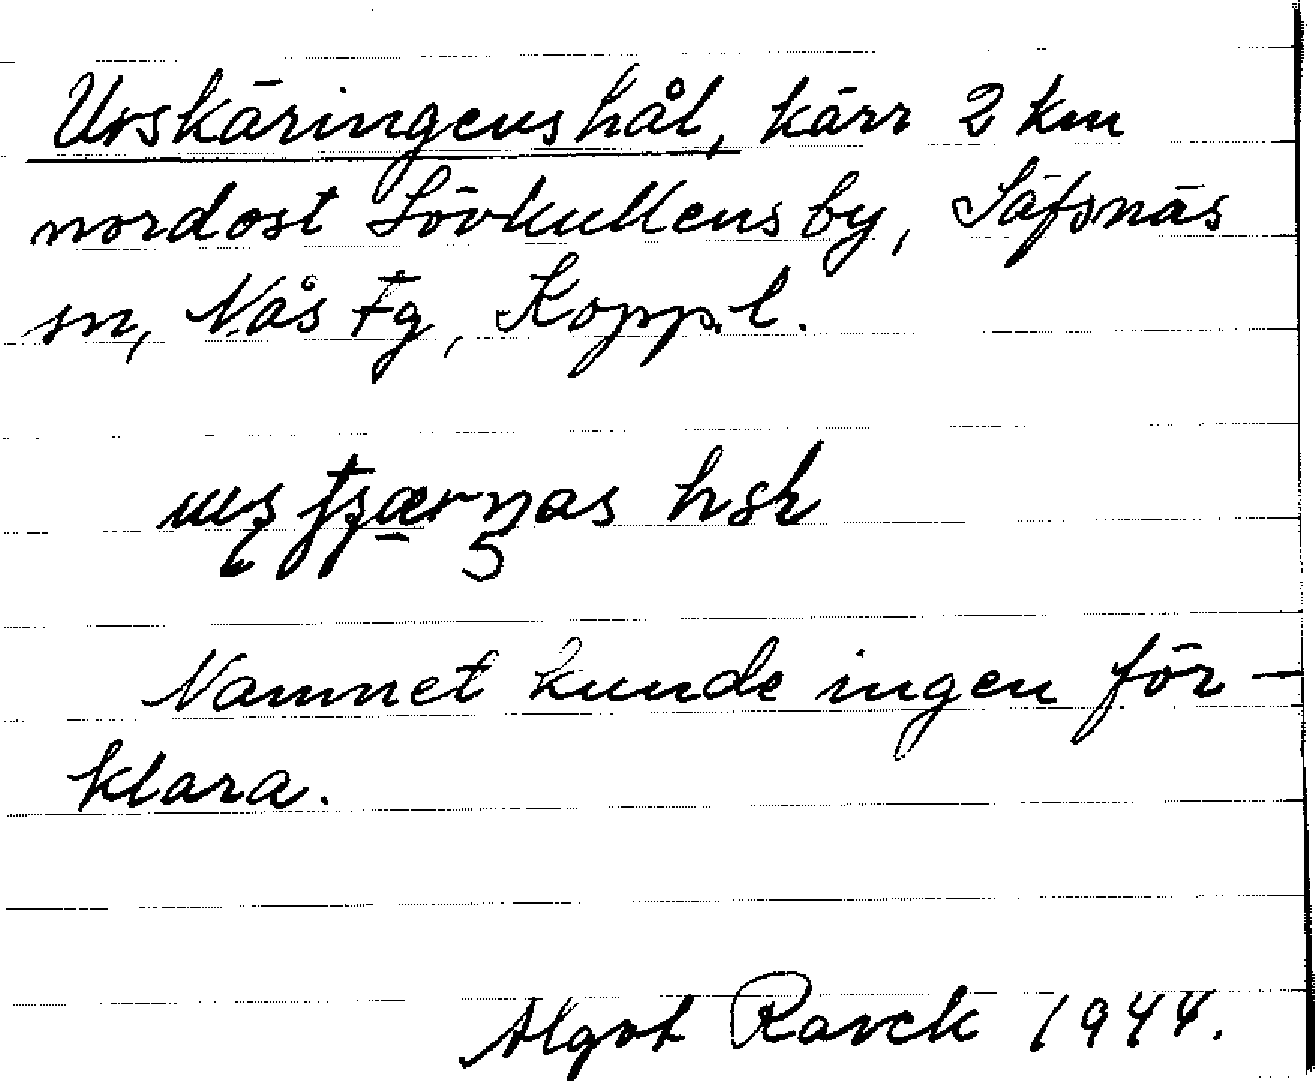 Urskäringens hål, kärr 2 km
nordost Lövkullens by, Säfsnäs
sn, Nås tg, Kopp.l.
hsk
Namnet kunde ingen för-
klara.
Algot Ravck 1944.